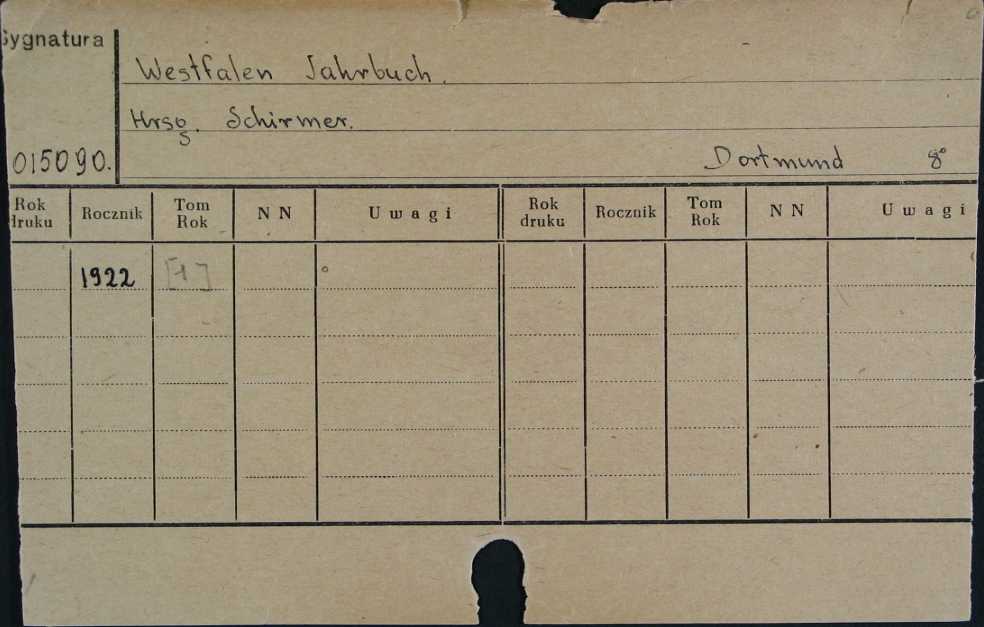 Sygnatura
Westfalen Jahrbuch.
Hrsg. Schirmer.
015090.
Dortmund 8°
Rok druku Rocznik Tom Rok NN Uwagi Rok druku Rocznik Tom Rok NN Uwagi
1922 [1]